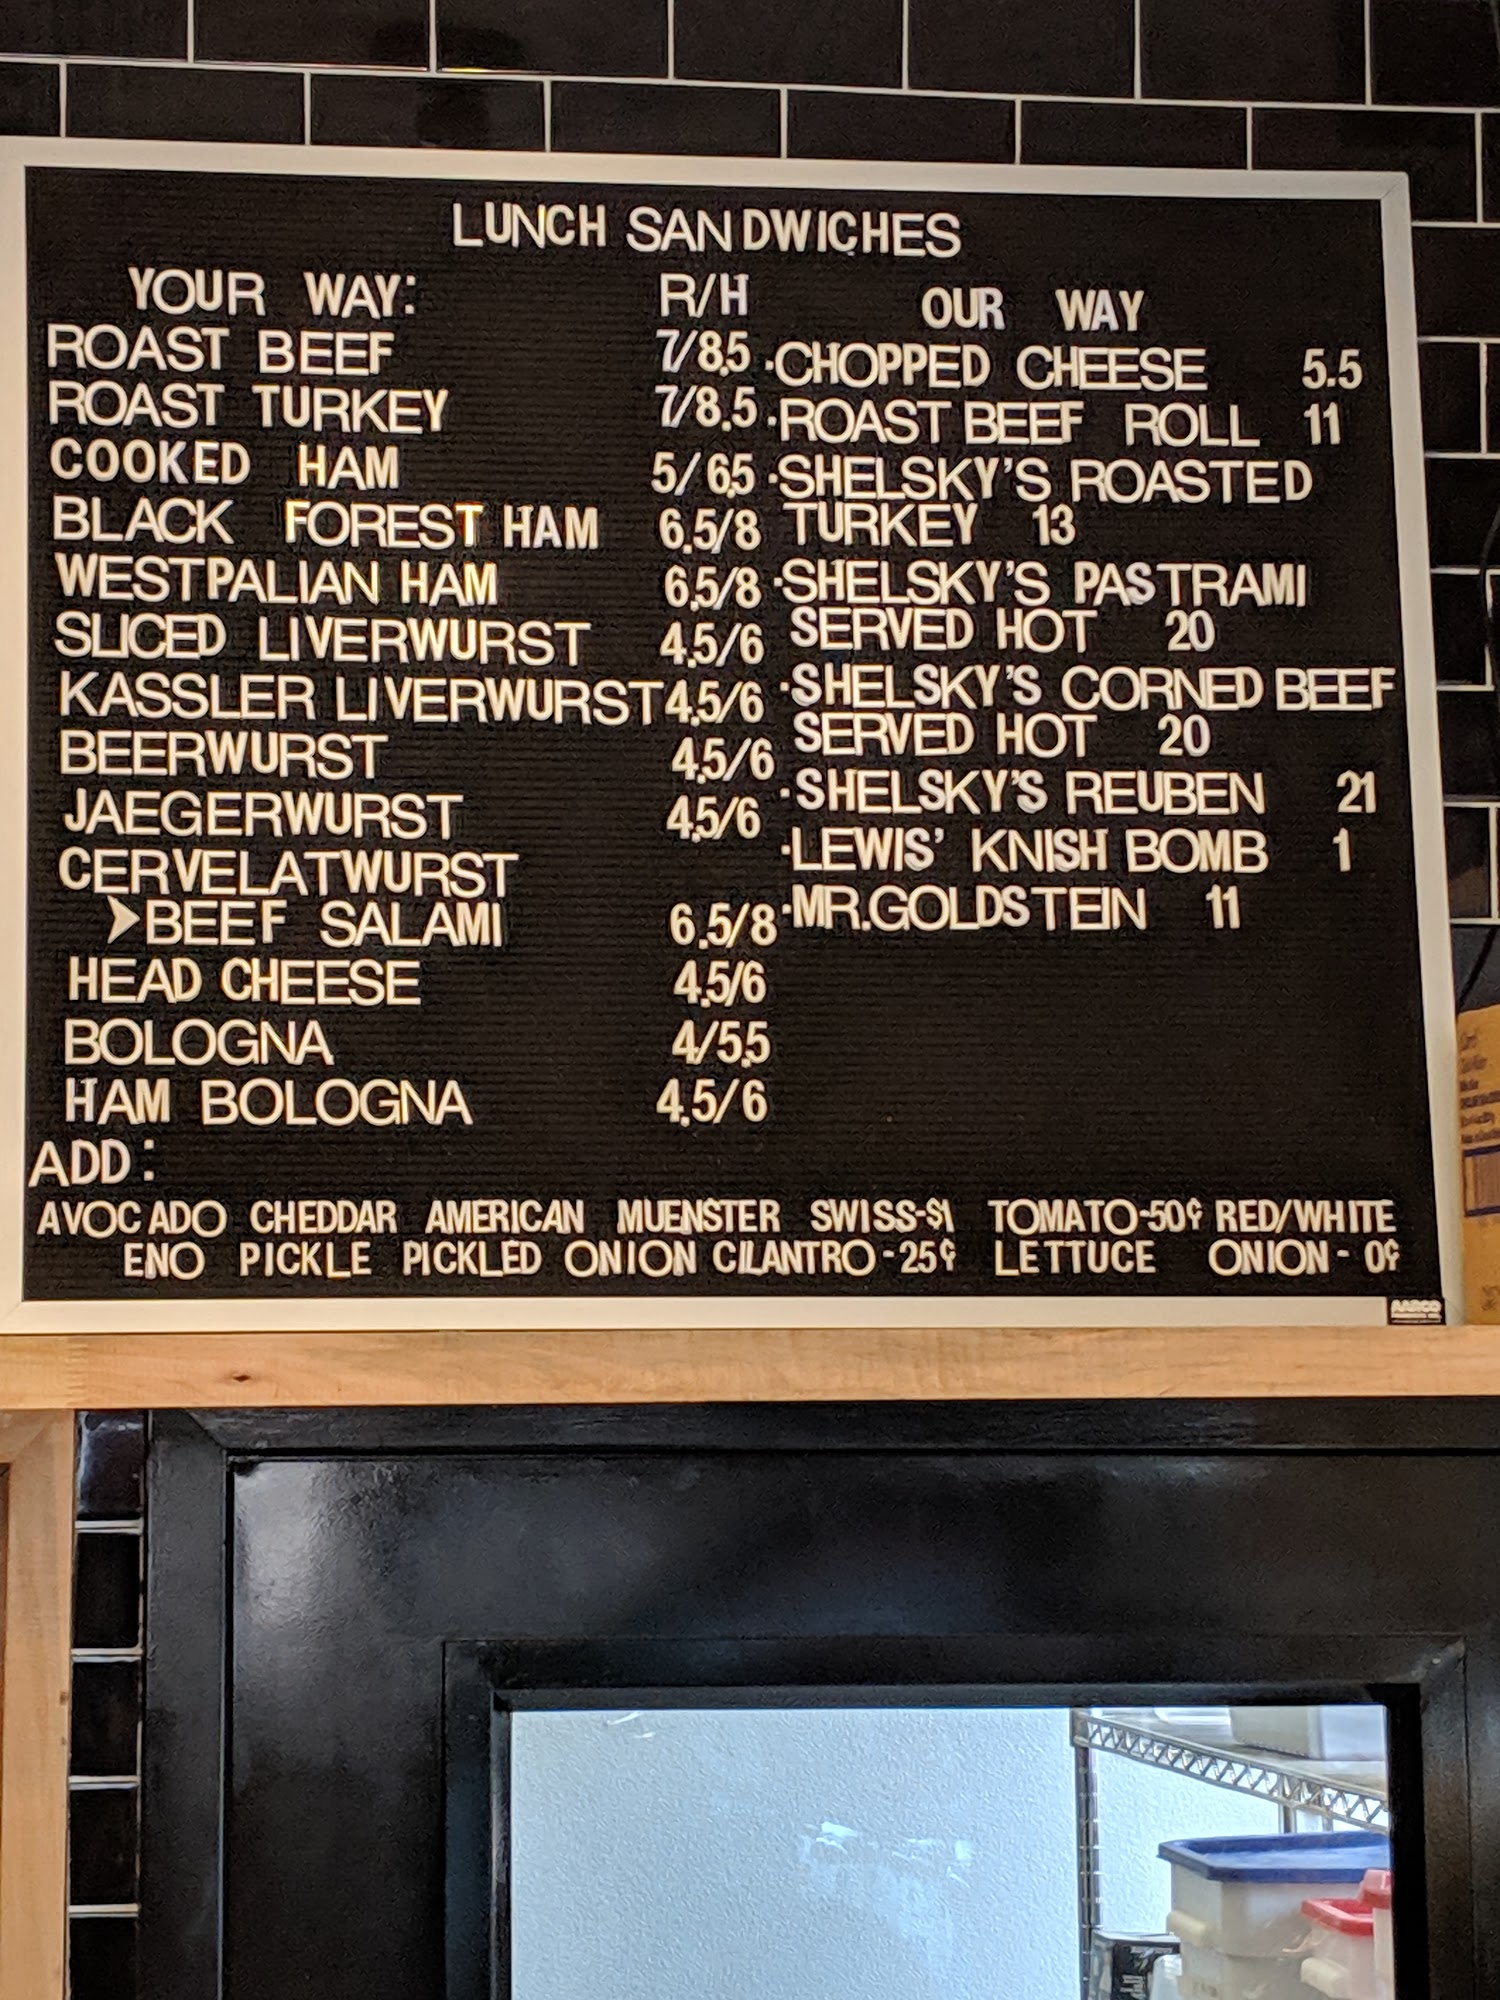 LUNCH SANDWICHES
YOUR WAY: R/H
ROAST BEEF 7/8.5
ROAST TURKEY 7/8.5
COOKED HAM 5/6.5
BLACK FOREST HAM 6.5/8
WESTPALIAN HAM 6.5/8
SLICED LIVERWURST 4.5/6
KASSLER LIVERWURST 4.5/6
BEERWURST 4.5/6
JAEGERWURST 4.5/6
CERVELATWURST
BEEF SALAMI 6.5/8
HEAD CHEESE 4.5/6
BOLOGNA 4/5.5
HAM BOLOGNA 4.5/6
OUR WAY
·CHOPPED CHEESE 5.5
·ROAST BEEF ROLL 11
·SHELSKY'S ROASTED
TURKEY 13
·SHELSKY'S PASTRAMI
SERVED HOT 20
·SHELSKY'S CORNED BEEF
SERVED HOT 20
·SHELSKY'S REUBEN 21
·LEWIS' KNISH BOMB 1
·MR.GOLDSTEIN 11
ADD:
AVOCADO CHEDDAR AMERICAN MUENSTER SWISS-$1 TOMATO-50¢ RED/WHITE
ENO PICKLE PICKLED ONION CILANTRO-25¢ LETTUCE ONION- 0¢
AARCO